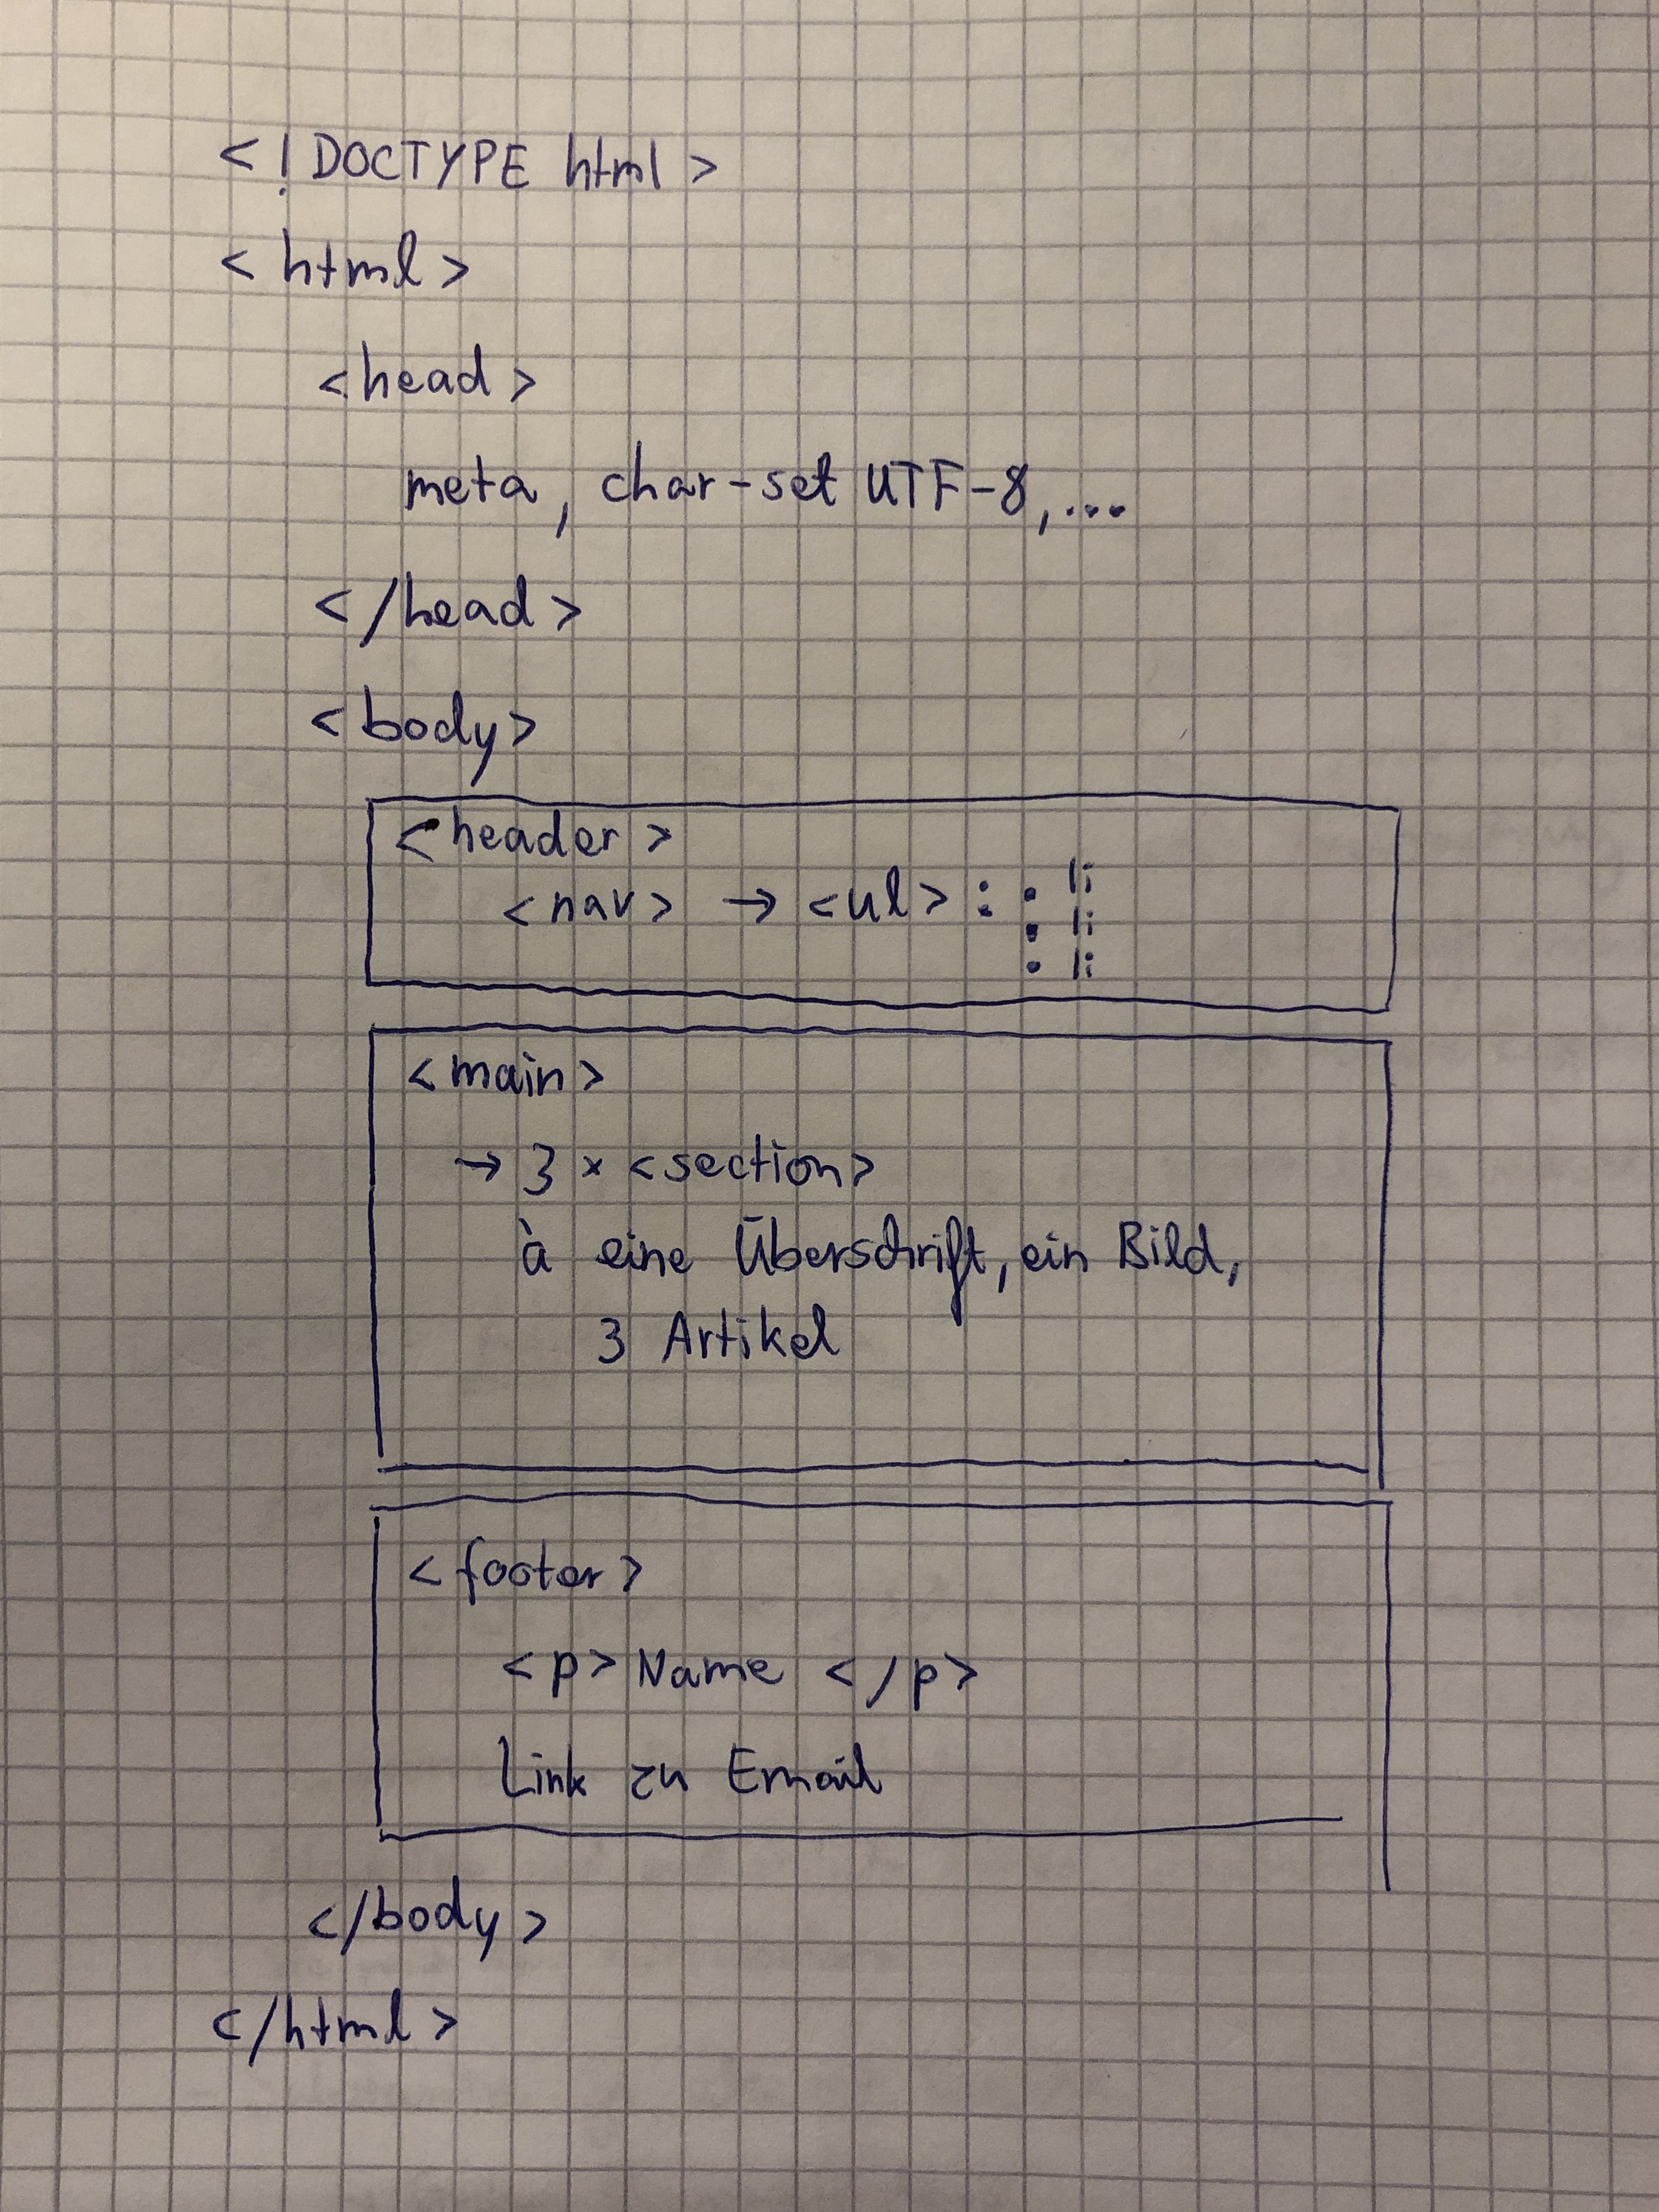 <!DOCTYPE html>
<html>
<head>
meta, char-set UTF-8,...
</head>
<body>
<header>
<nav> → <ul> : • li
• li
• li
<main>
→ 3 x <section>
à eine Überschrift, ein Bild,
3 Artikel
<footer>
<p> Name </p>
Link zu Email
</body>
</html>